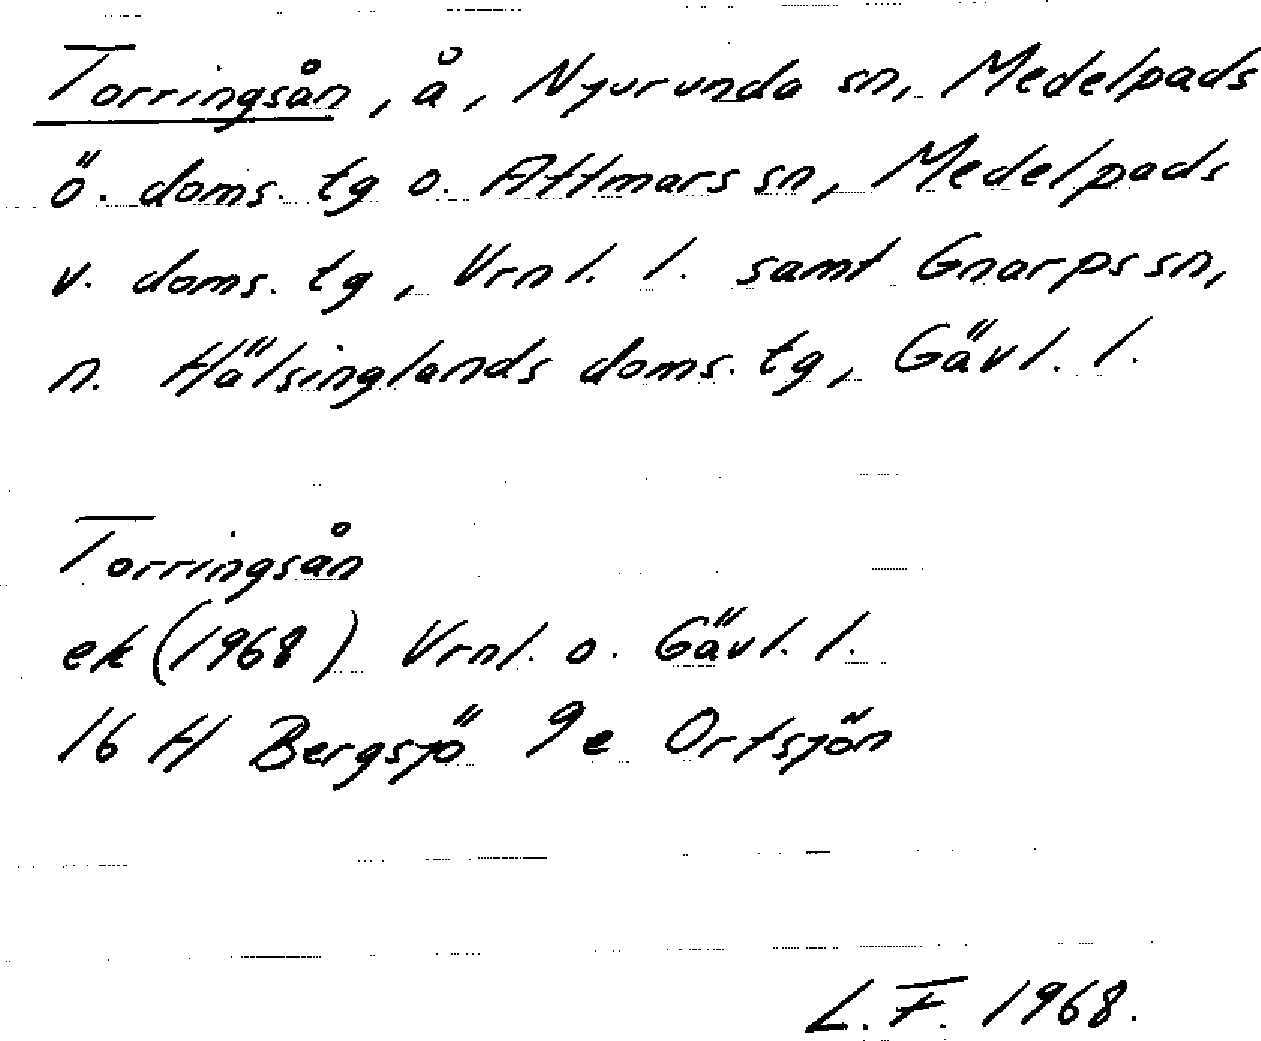 Torringsån, å, Njurunda sn, Medelpads
ö. doms. tg o. Attmars sn, Medelpads
v. doms. tg, Vrnl. l. samt Gnarps sn,
n. Hälsinglands doms. tg, Gävl. l.
Torringsån
ek (1968) Vrnl. o. Gävl. l.
16 H Bergsjö 9e Ortsjön
L.F. 1968.